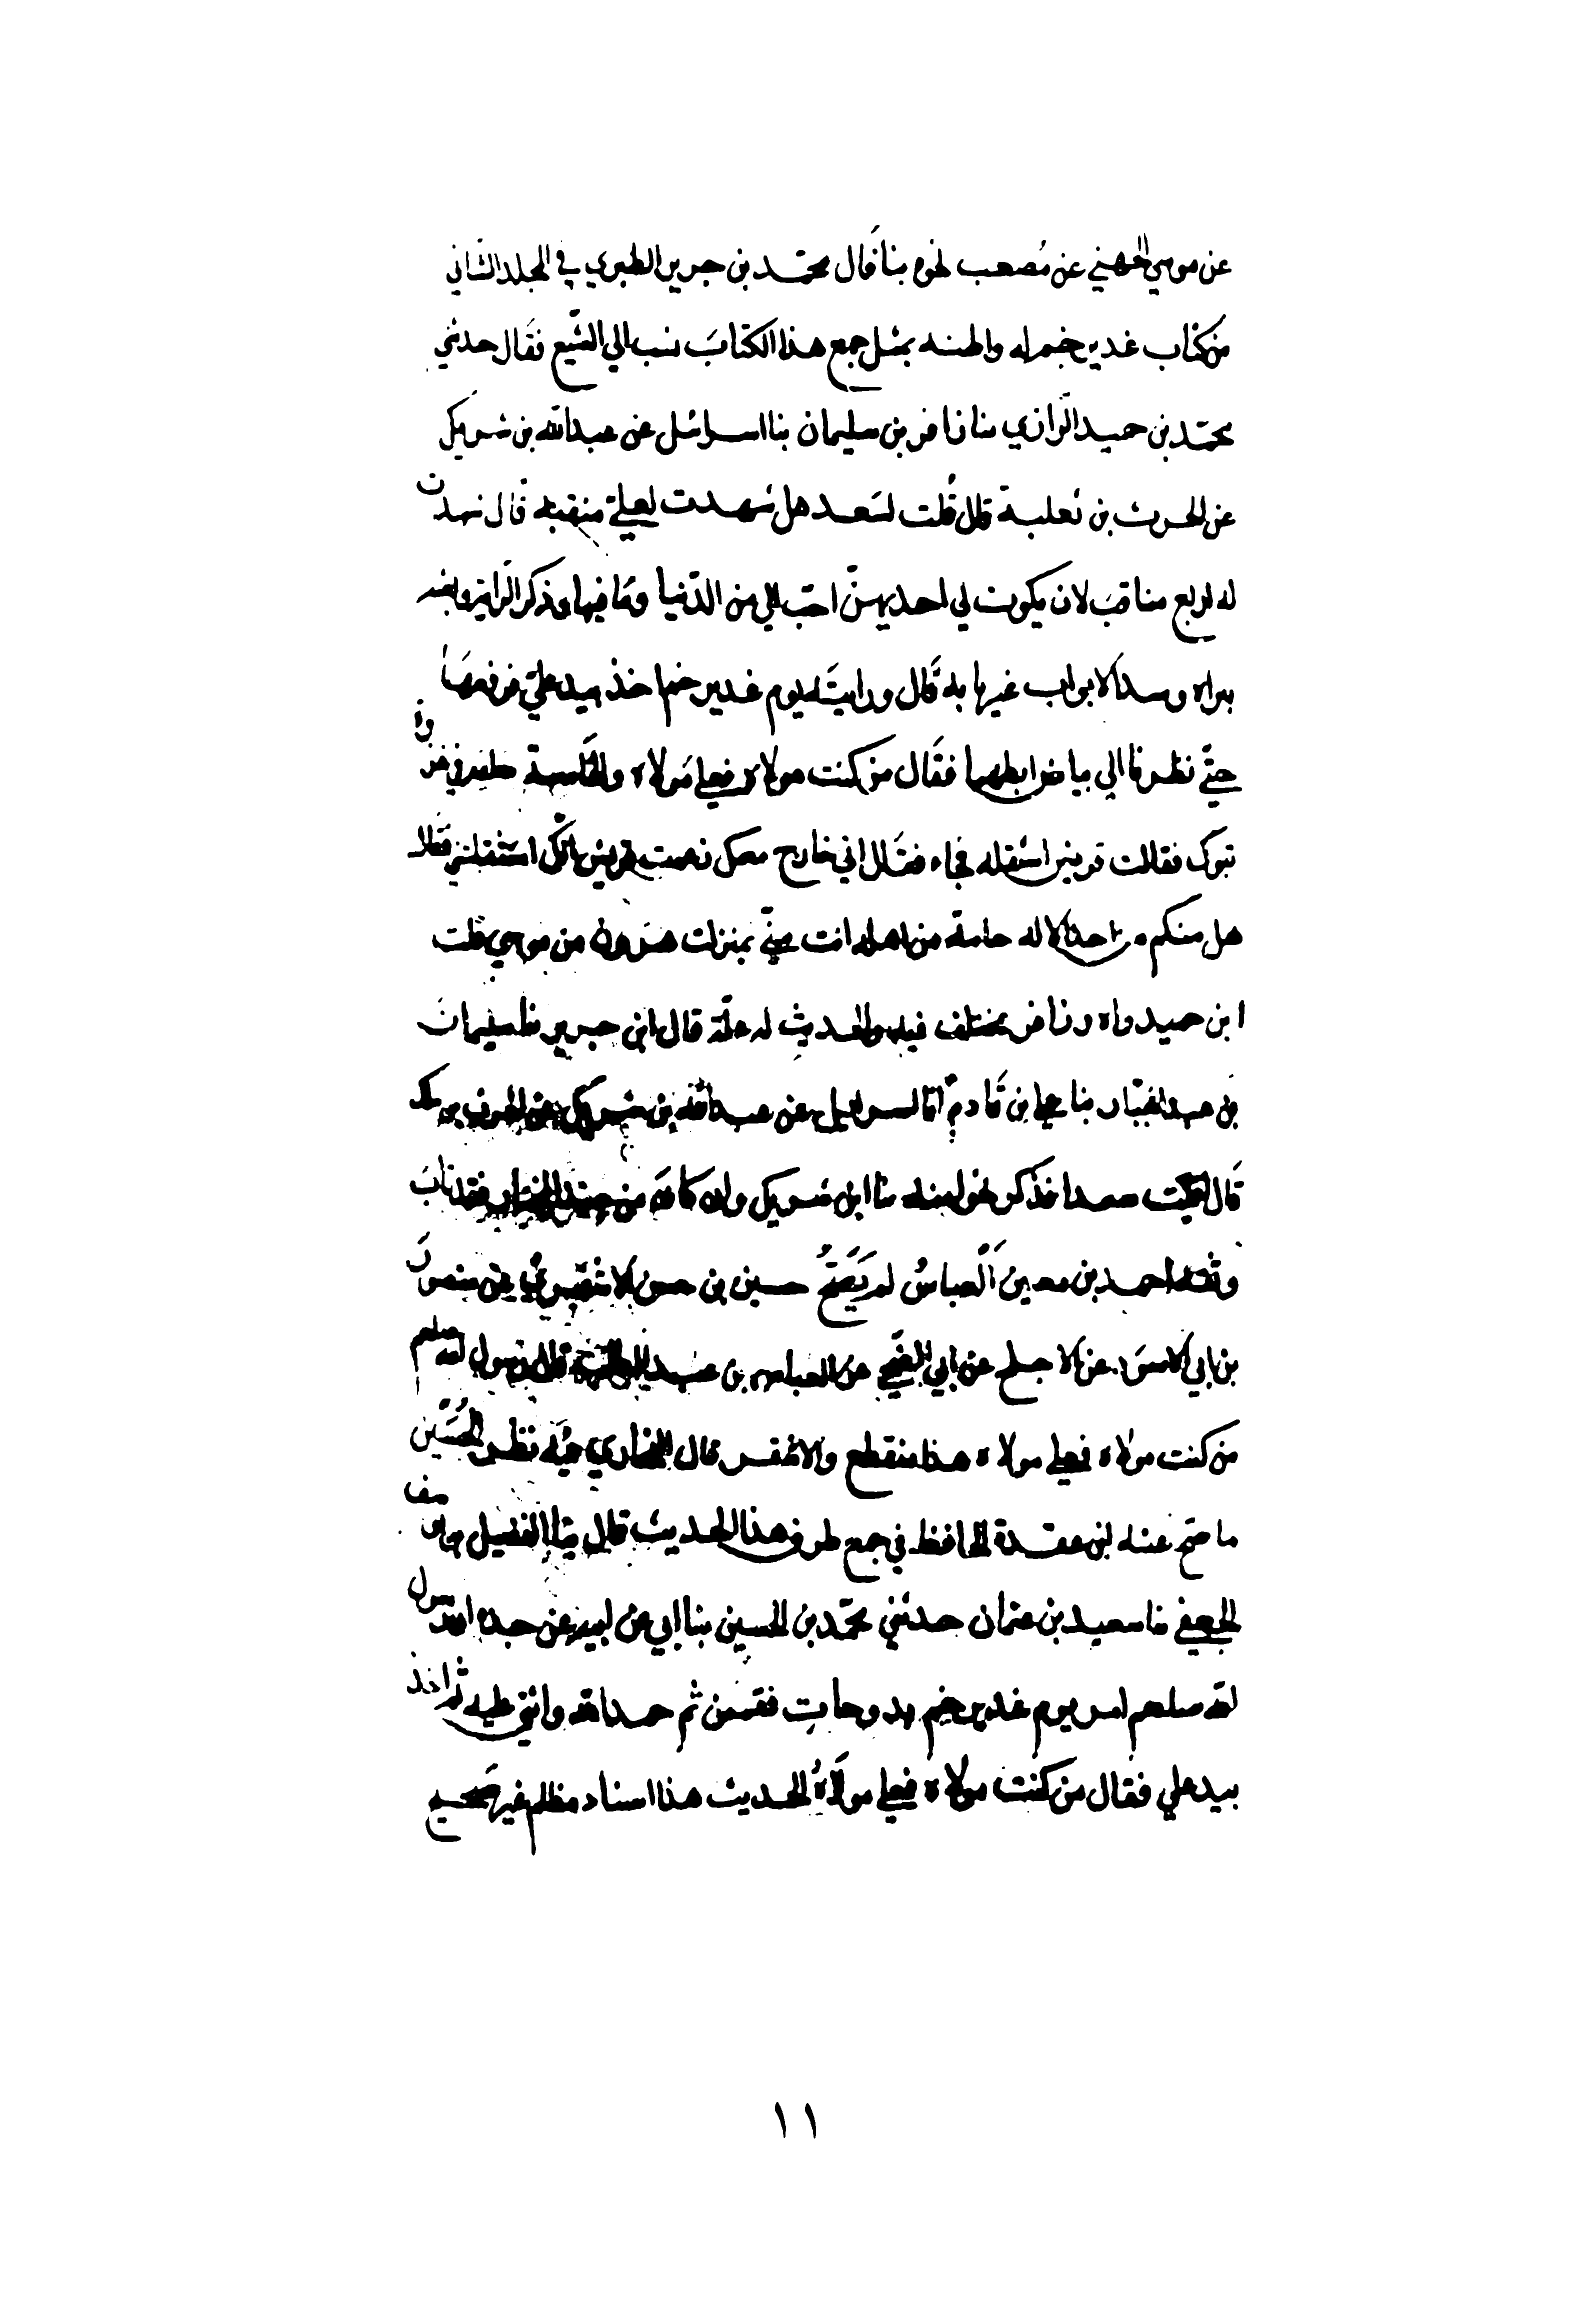 عن موسى الجهني عن مصعب نحوه بنا قال محمّد بن جرير الطبري في المجلد الثاني
من كتاب غدير خم له واظنه بمثل جمع هذا الكتاب نسب الي التشيع فقال حدثني
محمّد بن حميد الرّازي بنا زافر بن سليمان بنا اسرائيل عن عبد الله بن شريك
عن الحرث بن ثعلبة قال قلت لسعد هل شهدت لعلي منقبة قال شهدت
له اربع مناقب لان يكون لي احديهنّ احبّ الي من الدّنيا وما فيها وذكر الراية
براءة وسد الابواب غيربابه قال ورايته يوم غدير خم اخذ بيد علي فرفعها
حتّي نظرنا الي بياض ابطهما فقال من كنت مولاه فعلي مولاه والخامسة خلفه في
تبوك فقالت قريش استثقله فجاء فقال اني خارج معك زعمت قريش انك استثقلتني فقال
هل منكم احد الا له حامة من اهله انت منّي بمنزلت هرون من موسي قلت
ابن حميد واه وزافر مختلف فيه والحديث له علّة قال ابن جرير بنا سليمان
بن عبد الجبار بنا علي بن قادم انا اسرائيل عن عبد الله بن شريك عن الحرث بن مالك
قال لقيت سعدا فذكر نحوا منه بنا ابن شريك وان كان من فقد تاب
وثقه احمد بن معين العباس لم يصح حسين بن حسن الاشقر عن منصور
بن ابي الاسود عن الاجلح عن ابي الضحى عن العباس بن عبد المطلب قال رسول الله صلعم
من كنت مولاه فعلي مولاه هذا منقطع والاشقر قال البخاري فيه نظر الحسين
ما صح عنه ابن عقدة الحافظ في جمع طرف هذا الحديث قال بنا الفضيل
الجعفي نا سعيد بن عثمان حدثني محمّد بن الحسين بنا ابي عن ابيه عن جده ان رسول
الله صلعم امر يوم غدير خم بدوحات فقممن ثم حمد الله واثني عليه ثم اخذ
بيد علي فقال من كنت مولاه فعلي مولاه الحديث هذا اسناد مظلم غير صحيح
١١